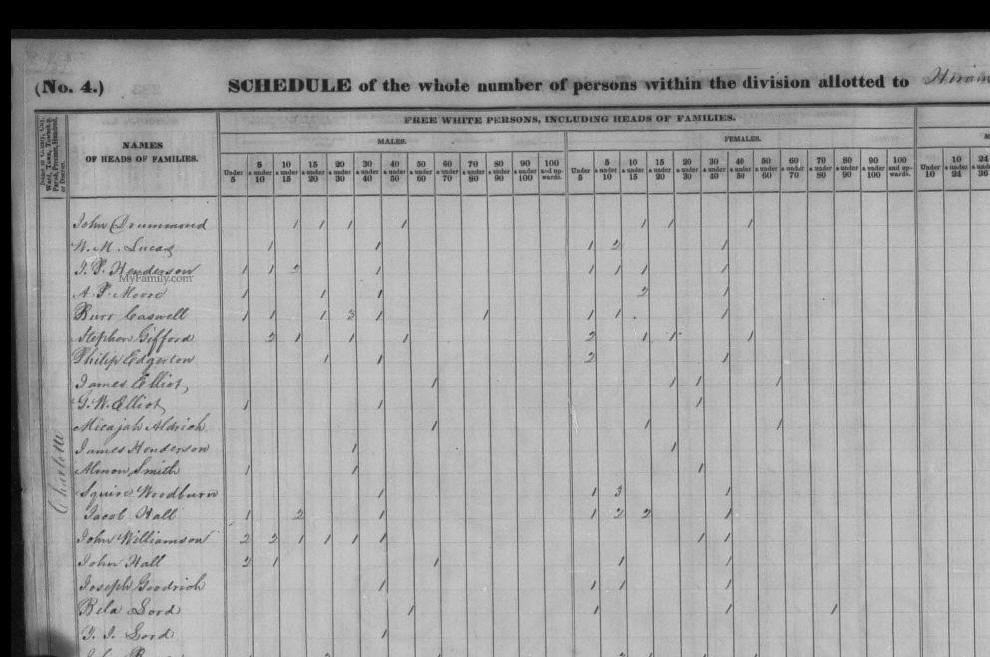 (No. 4.) SCHEDULE of the whole number of persons within the division allotted to Hiram
FREE WHITE PERSONS, INCLUDING HEADS OF FAMILIES.
NAMES OF HEADS OF FAMILIES.
MALES. FEMALES.
Under 5 5 & under 10 10 & under 15 15 & under 20 20 & under 30 30 & under 40 40 & under 50 50 & under 60 60 & under 70 70 & under 80 80 & under 90 90 & under 100 100 and upwards. Under 5 5 & under 10 10 & under 15 15 & under 20 20 & under 30 30 & under 40 40 & under 50 50 & under 60 60 & under 70 70 & under 80 80 & under 90 90 & under 100 100 and upwards. Under 10 10 & under 24 24 & under 36
Charlotte
John Drummond 1 1 1 1 1 1 1
W. M. Lucas 1 1 1 2 1
J. P. Henderson 1 1 2 1 1 1 1 1
MyFamily.com
A. P. Moore 1 1 1 2 1
Burr Caswell 1 1 1 3 1 1 1 1 1
Stephen Gifford 2 1 1 1 2 1 1 1
Philip Edgerton 1 1 2 1
James Elliot 1 1 1 1
G. W. Elliot 1 1 1
Micajah Aldrich 1 1 1
James Henderson 1 1
Almon Smith 1 1 1
Squire Woodburn 1 1 3 1
Jacob Hall 1 2 1 1 2 2 1
John Williamson 2 2 1 1 1 1 1 1
John Hall 2 1 1 1 1
Joseph Goodrich 1 1 1 1
Bela Lord 1 1 1 1
T. I. Lord 1